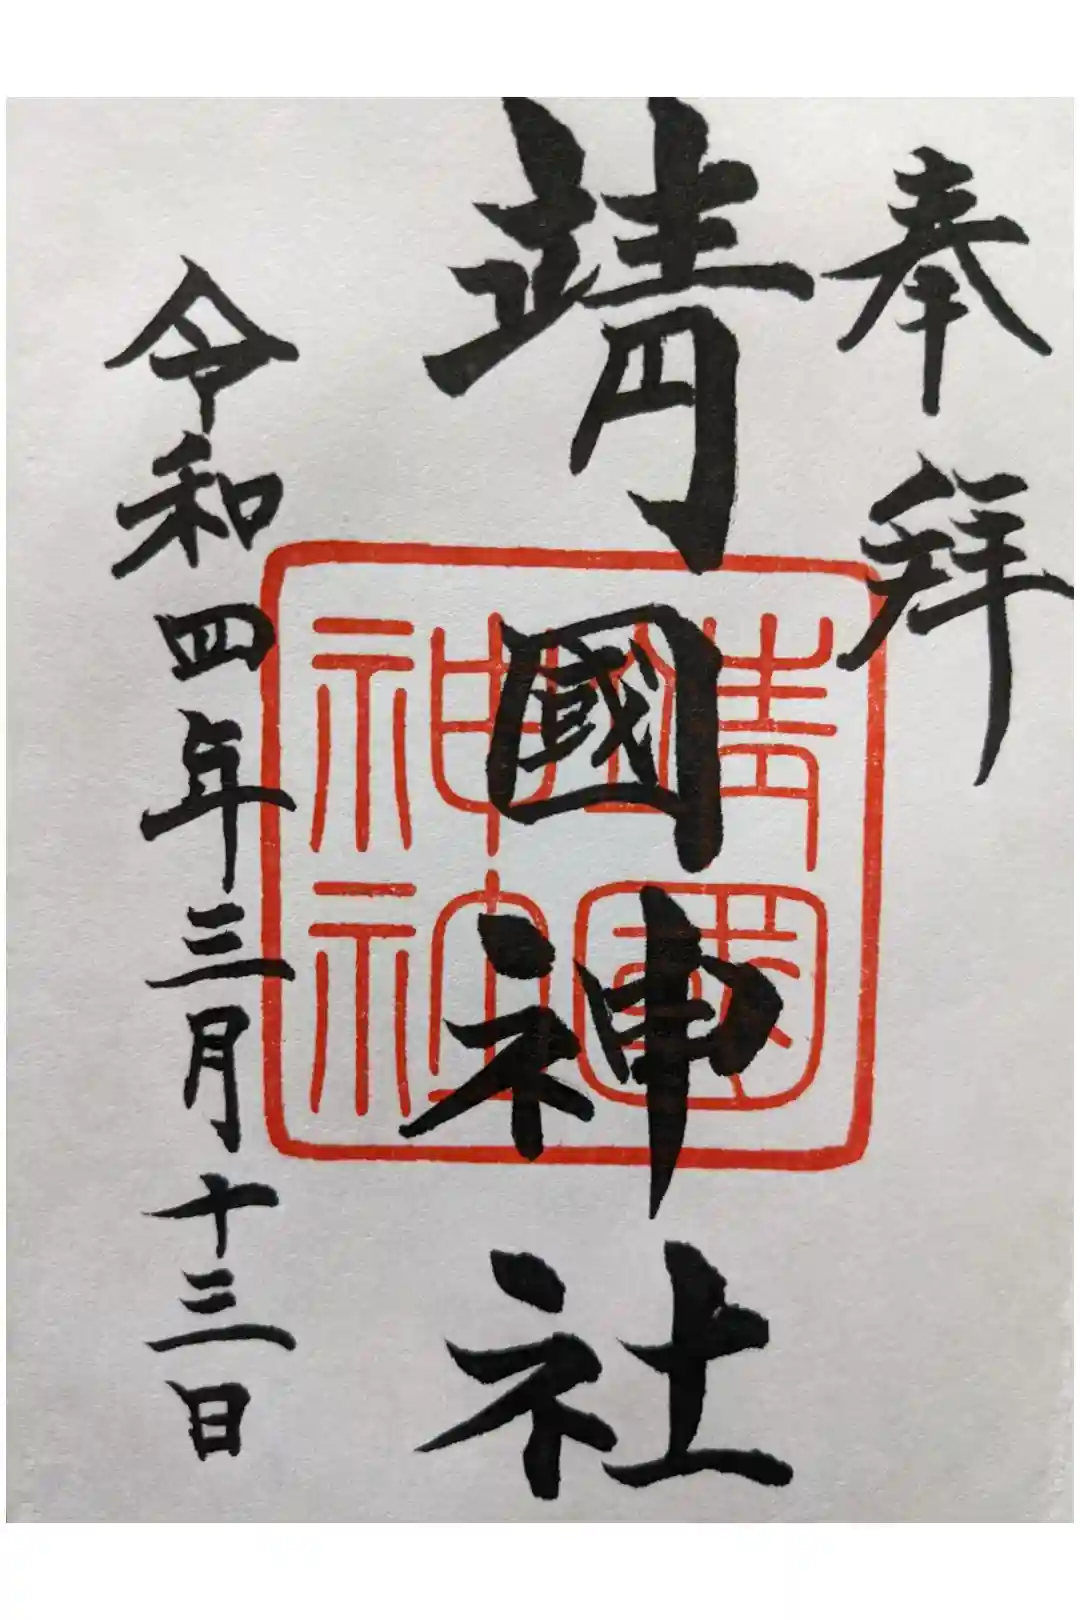 奉拜
靖國神社
靖國神社
令和四年三月十三日